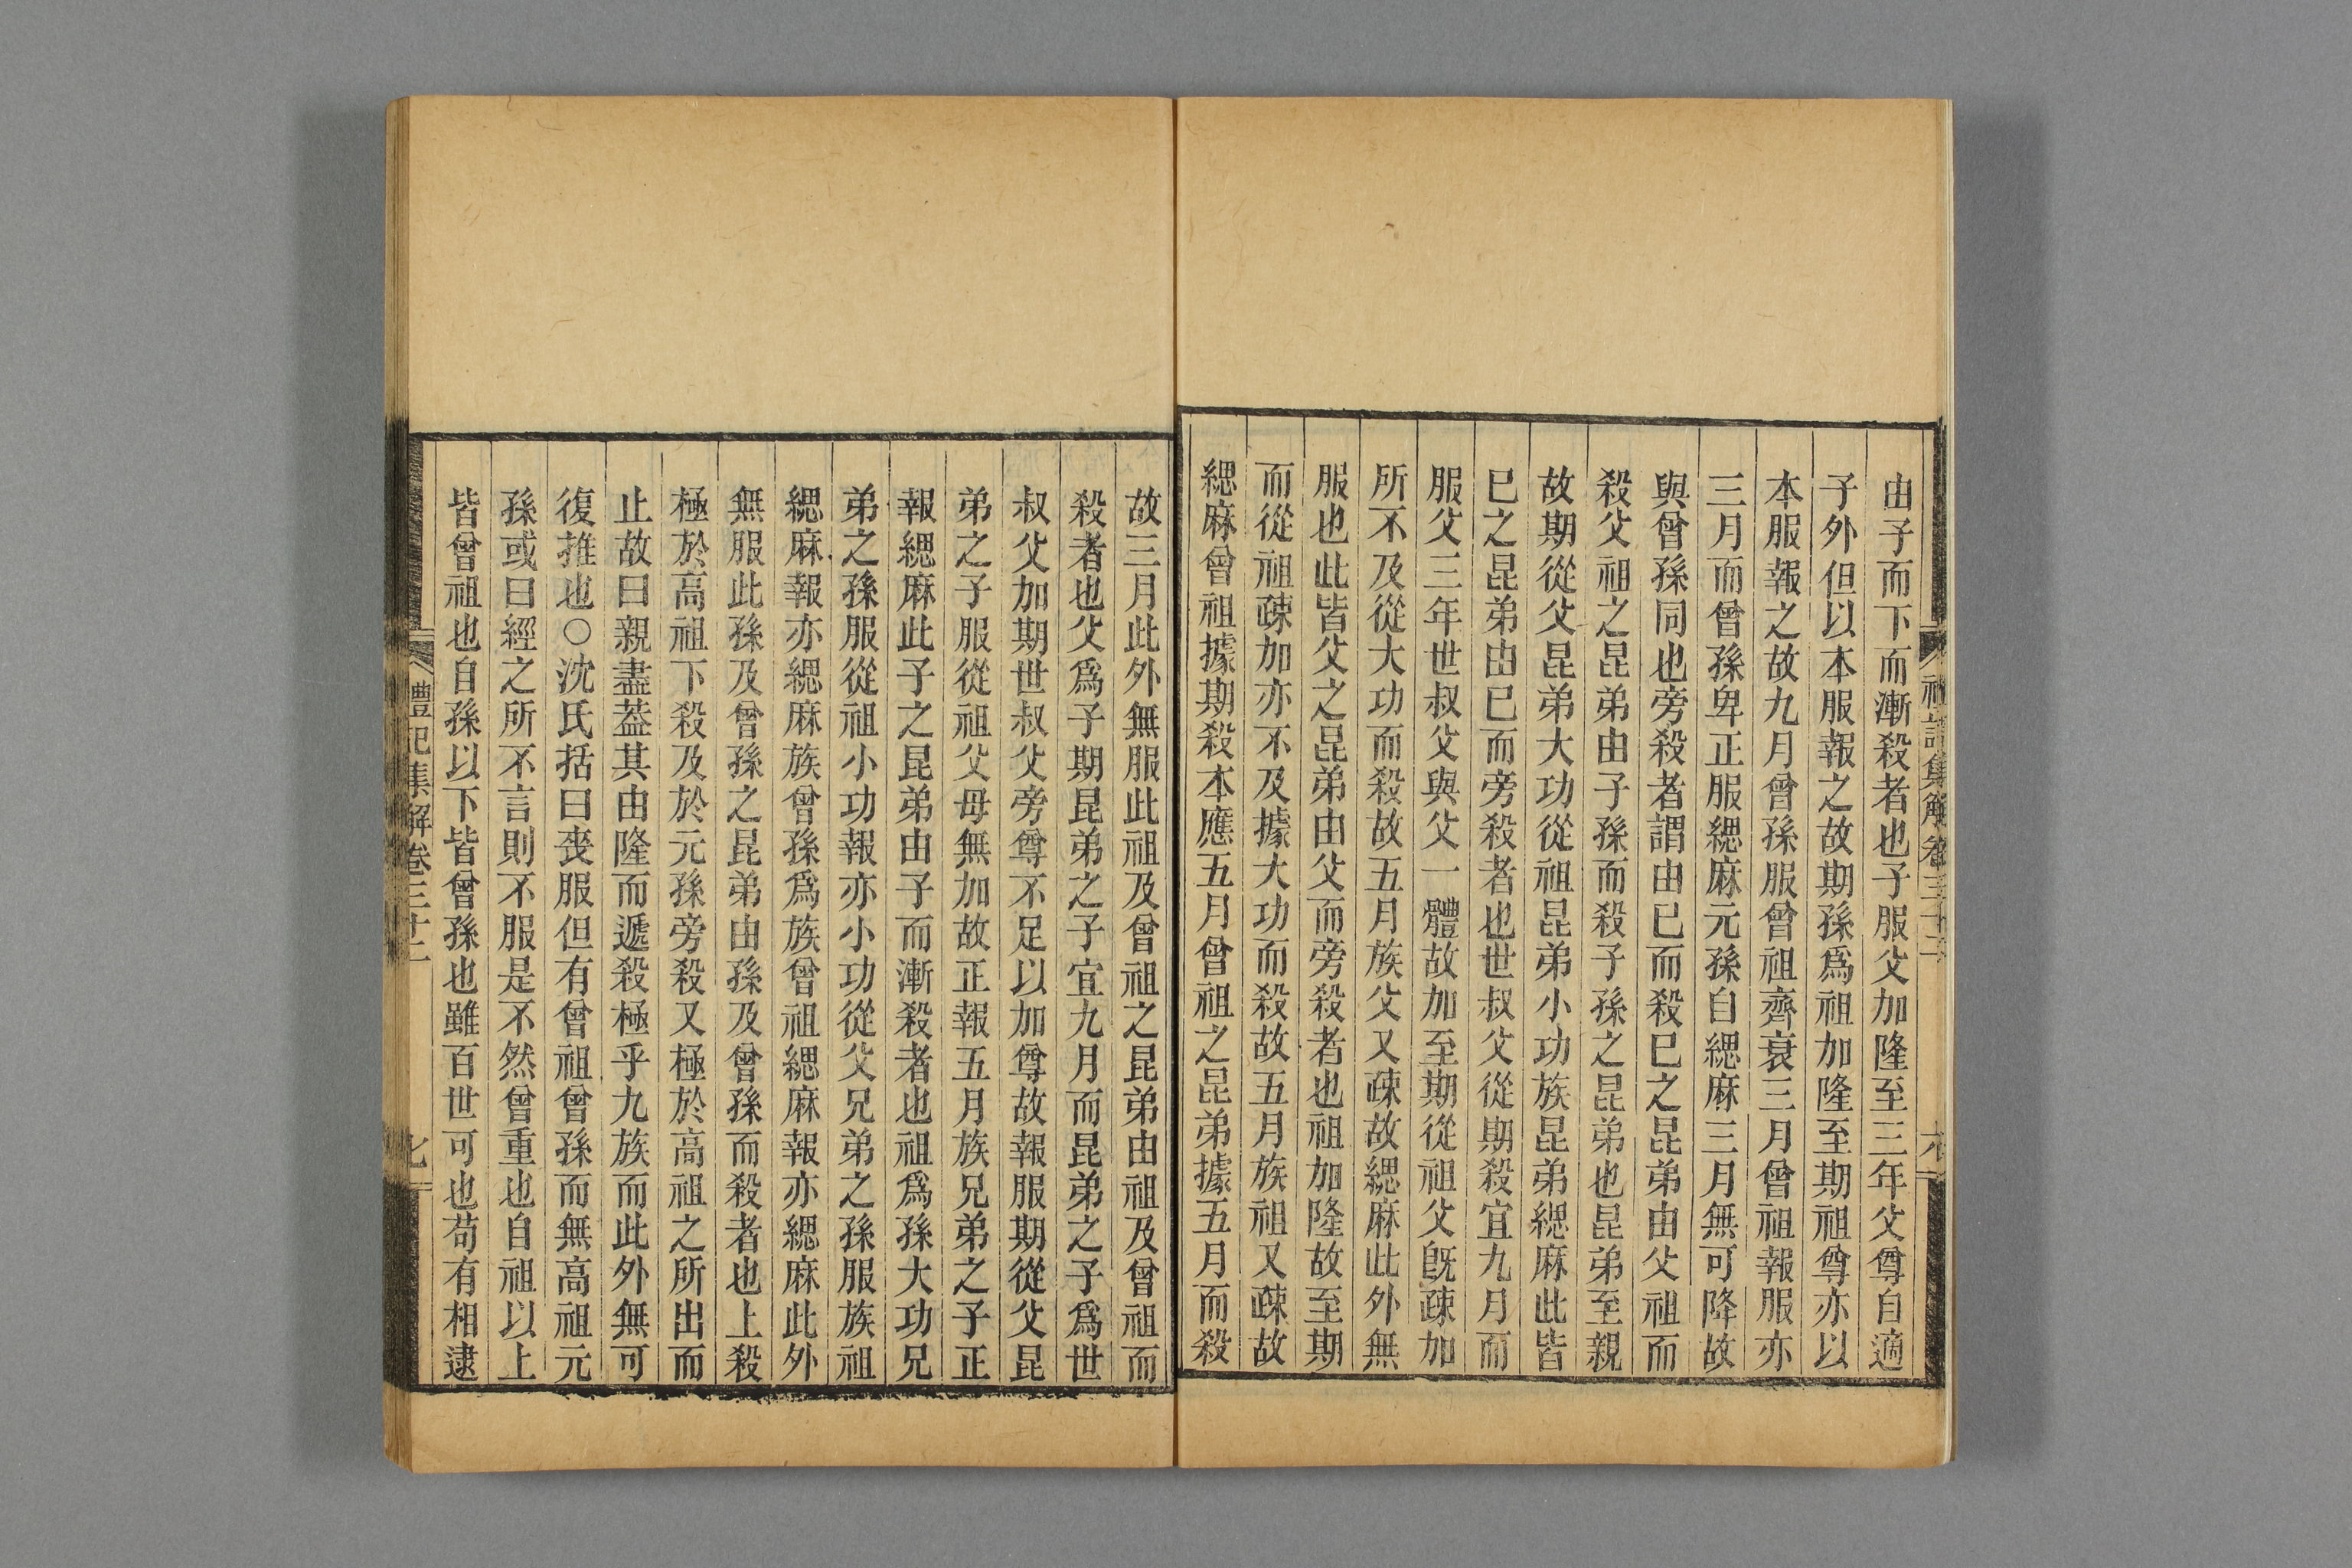 由子而下而漸殺者也子服父加隆至三年父尊自適
子外但以本服報之故期孫爲祖加隆至期祖尊亦以
本服報之故九月曾孫服曾祖齊衰三月曾祖報服亦
三月而曾孫卑正服緦麻元孫自緦麻三月無可降故
與曾孫同也旁殺者謂由已而殺已之昆弟由父祖而
殺父祖之昆弟由子孫而殺子孫之昆弟也昆弟至親
故期從父昆弟大功從祖昆弟小功族昆弟緦麻此皆
已之昆弟由已而旁殺者也世叔父從期殺宜九月而
服父三年世叔父與父一體故加至期從祖父旣疎加
所不及從大功而殺故五月族父又疎故緦麻此外無
服也此皆父之昆弟由父而旁殺者也祖加隆故至期
而從祖疎加亦不及據大功而殺故五月族祖又疎故
緦麻曾祖據期殺本應五月曾祖之昆弟據五月而殺
故三月此外無服此祖及曾祖之昆弟由祖及曾祖而
殺者也父爲子期昆弟之子宜九月而昆弟之子爲世
叔父加期世叔父旁尊不足以加尊故報服期從父昆
弟之子服從祖父母無加故正報五月族兄弟之子正
報緦麻此子之昆弟由子而漸殺者也祖爲孫大功兄
弟之孫服從祖小功報亦小功從父兄弟之孫服族祖
緦麻報亦緦麻族曾孫爲族曾祖緦麻報亦緦麻此外
無服此孫及曾孫之昆弟由孫及曾孫而殺者也上殺
極於高祖下殺及於元孫旁殺又極於高祖之所出而
止故曰親盡葢其由隆而遞殺極乎九族而此外無可
復推也○沈氏括曰喪服但有曾祖曾孫而無高祖元
孫或曰經之所不言則不服是不然曾重也自祖以上
皆曾祖也自孫以下皆曾孫也雖百世可也苟有相逮
禮記集解卷三十二
七